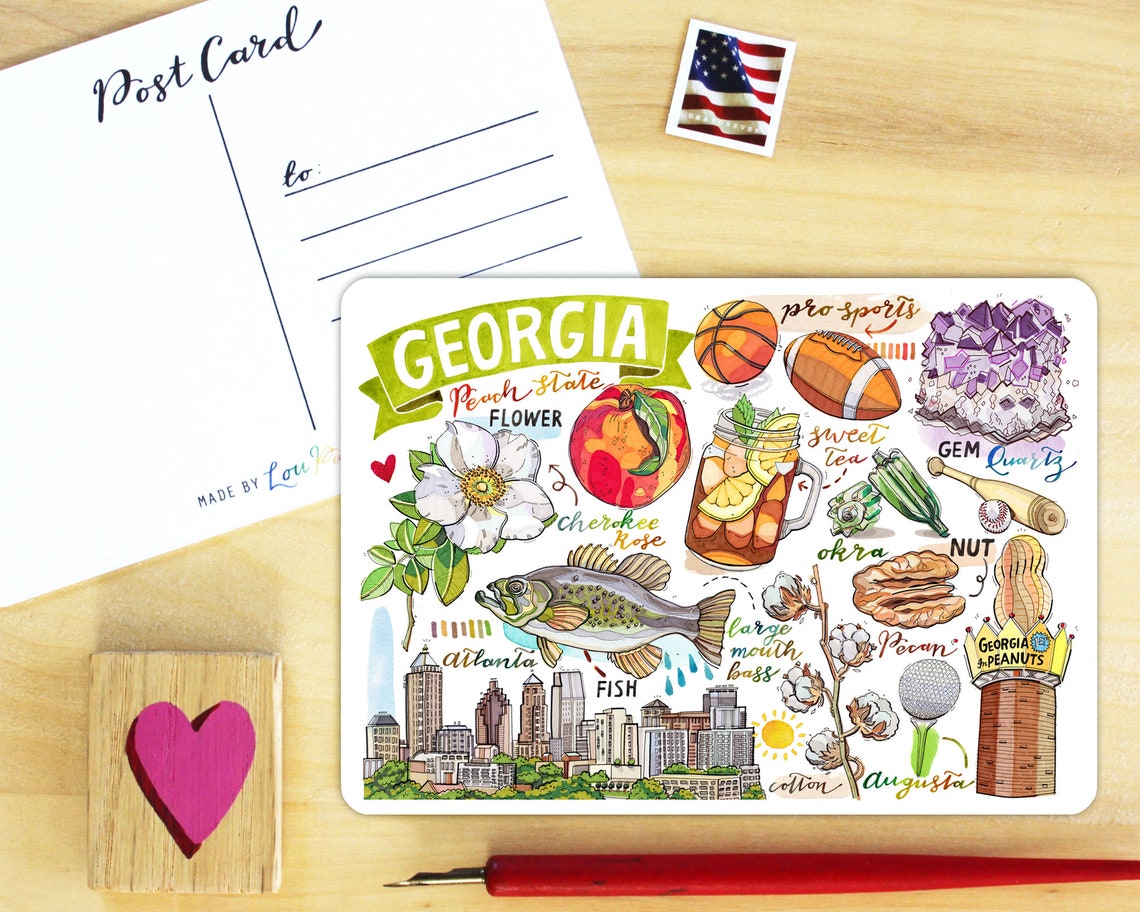 Post Card
to:
MADE BY Lou Pa
USA FOREVER
GEORGIA
Peach State
FLOWER
Cherokee
Rose
pro sports
sweet
tea
GEM Quartz
okra
NUT
Pecan
GEORGIA
#1
In PEANUTS
large
mouth
bass
FISH
atlanta
cotton
augusta